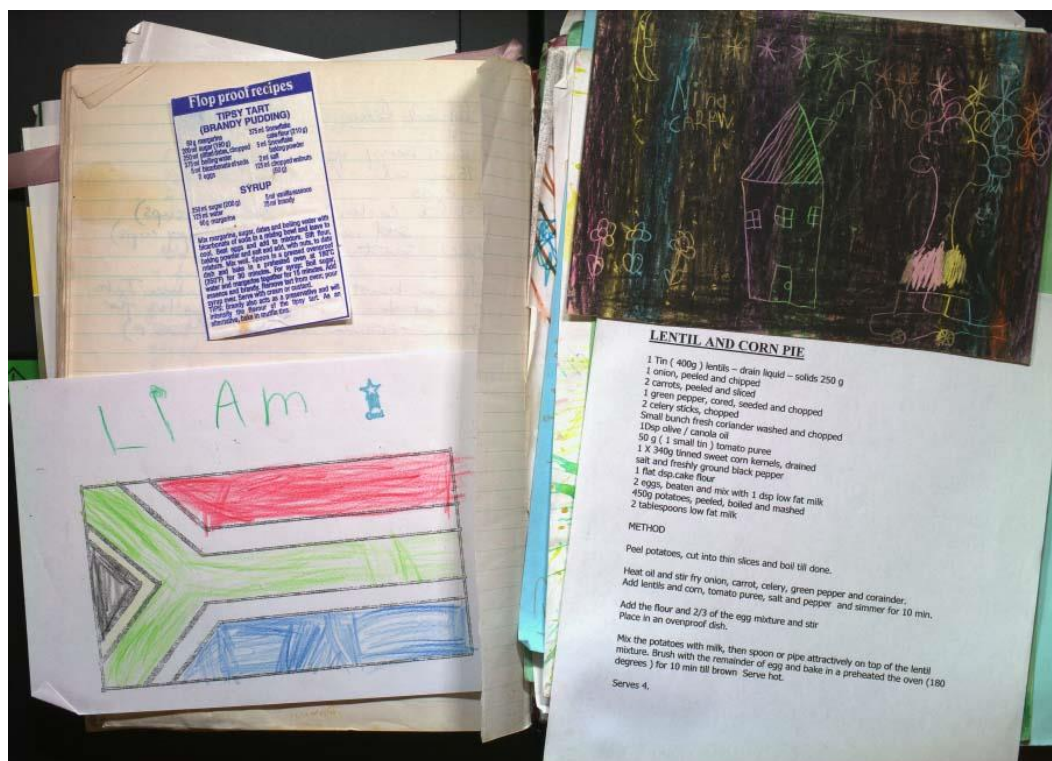 Flop proof recipes
TIPSY TART
(BRANDY PUDDING)
60 g margarine
200 ml sugar (160 g)
250 ml pitted dates, chopped
375 ml boiling water
5 ml bicarbonate of soda
2 eggs
375 ml Snowflake
cake flour (210 g)
5 ml Snowflake
baking powder
2 ml salt
125 ml chopped walnuts
(50 g)
SYRUP
250 ml sugar (200 g)
125 ml water
60 g margarine
5 ml vanilla essence
75 ml brandy
Mix margarine, sugar, dates and boiling water with
bicarbonate of soda in a mixing bowl and leave to
cool. Beat eggs and add to mixture. Sift flour,
baking powder and salt and add, with nuts, to date
mixture. Mix well. Spoon in a greased ovenproof
dish and bake in a preheated oven at 180°C
(350°F) for 30 minutes. For syrup: Boil sugar,
water and margarine together for 15 minutes. Add
essence and brandy. Remove tart from oven; pour
syrup over. Serve with cream or custard.
TIPS: Brandy also acts as a preservative and will
intensify the flavour of the tipsy tart. As an
alternative, bake in muffin tins.
LIAm
Nina
CAREW
LENTIL AND CORN PIE
1 Tin ( 400g ) lentils – drain liquid – solids 250 g
1 onion, peeled and chipped
2 carrots, peeled and sliced
1 green pepper, cored, seeded and chopped
2 celery sticks, chopped
Small bunch fresh coriander washed and chopped
1Dsp olive / canola oil
50 g ( 1 small tin ) tomato puree
1 X 340g tinned sweet corn kernels, drained
salt and freshly ground black pepper
1 flat dsp.cake flour
2 eggs, beaten and mix with 1 dsp low fat milk
450g potatoes, peeled, boiled and mashed
2 tablespoons low fat milk
METHOD
Peel potatoes, cut into thin slices and boil till done.
Heat oil and stir fry onion, carrot, celery, green pepper and corainder.
Add lentils and corn, tomato puree, salt and pepper and simmer for 10 min.
Add the flour and 2/3 of the egg mixture and stir
Place in an ovenproof dish.
Mix the potatoes with milk, then spoon or pipe attractively on top of the lentil
mixture. Brush with the remainder of egg and bake in a preheated the oven (180
degrees ) for 10 min till brown Serve hot.
Serves 4.